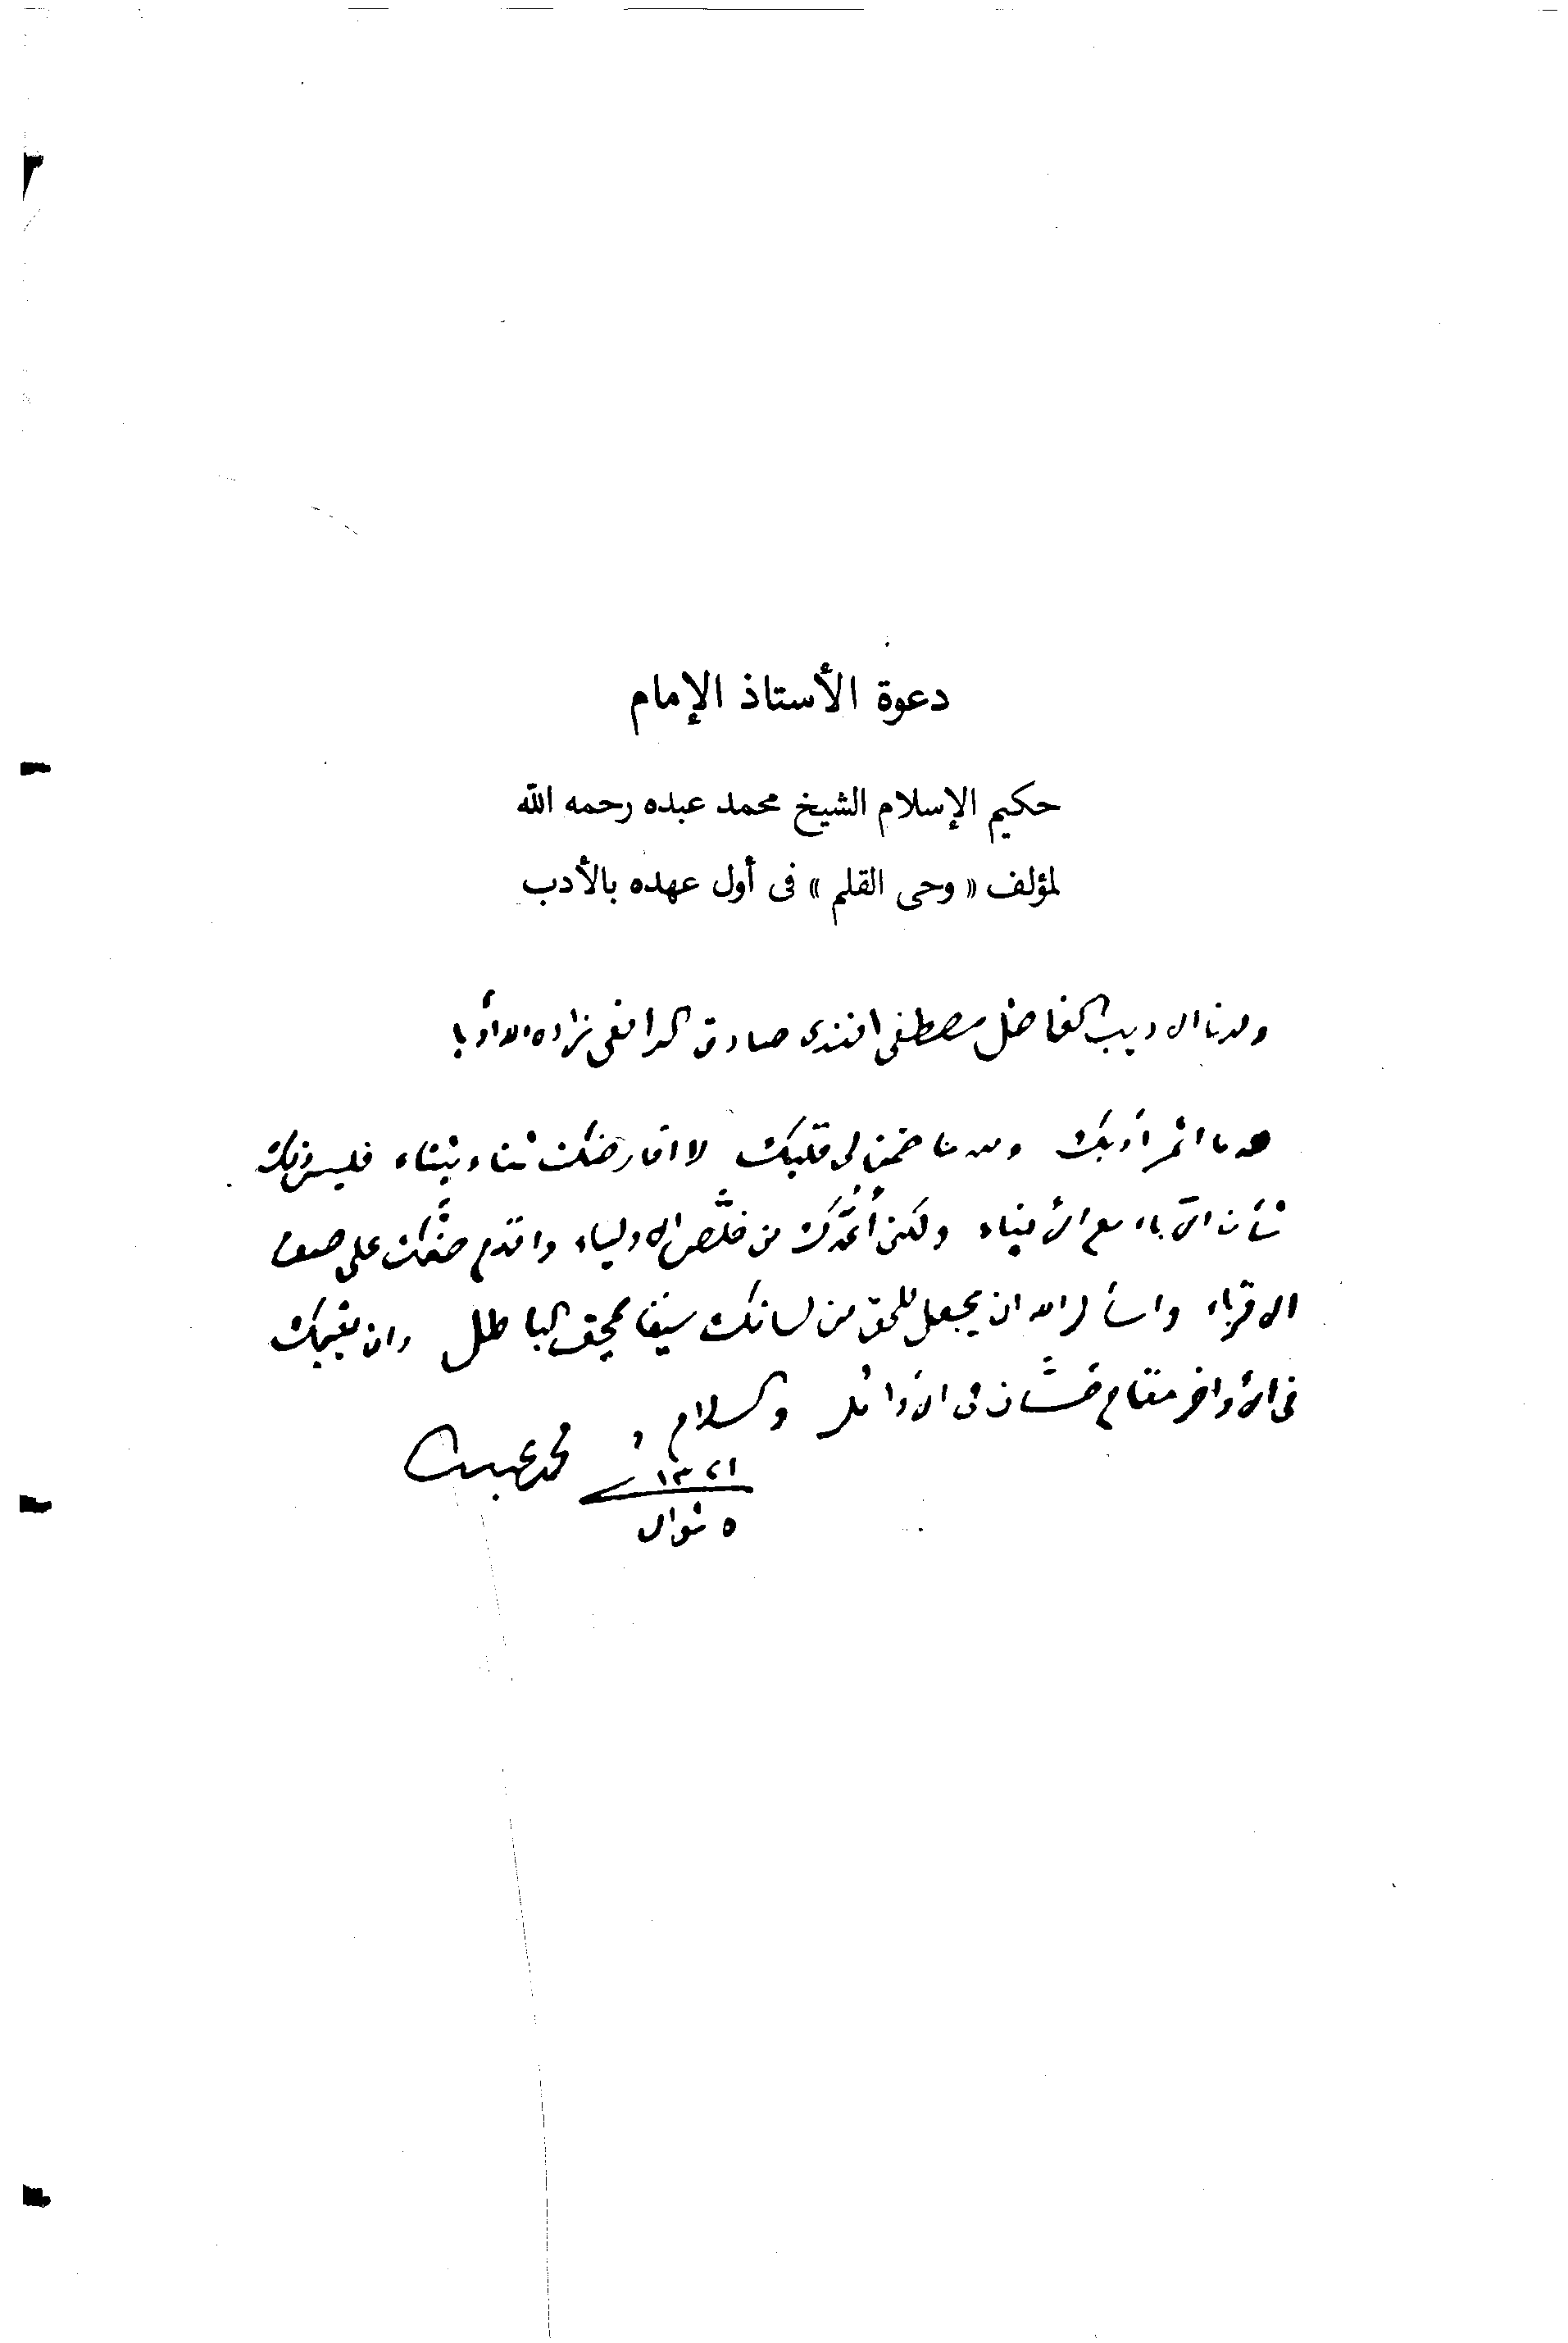 دعوة الأستاذ الإمام
حكيم الإسلام الشيخ محمد عبده رحمه الله
لمؤلف « وحى القلم » فى أول عهده بالأدب
ولدنا الاديب الفاضل مصطفى افندى صادق الرافعى زاده الله أدبا
لله ما اثمر أدبك ولله ما ضمن لى قلبك لا اقارضك ثناء بثناء فليس ذلك
شأن الآباء مع الأبناء ولكنى أعُدّك من خلّص الاولياء واقدم صفّك على صف
الاقرباء واسأل الله ان يجعل للحق من لسانك سيفا يمحق الباطل وان يقيمك
فى الأواخر مقام حسّان فى الأوائل والسلام
محمد عبده
١٣٢١
٥ شوال